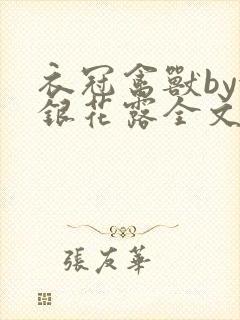 衣冠禽獸by
銀花露全文
張友華